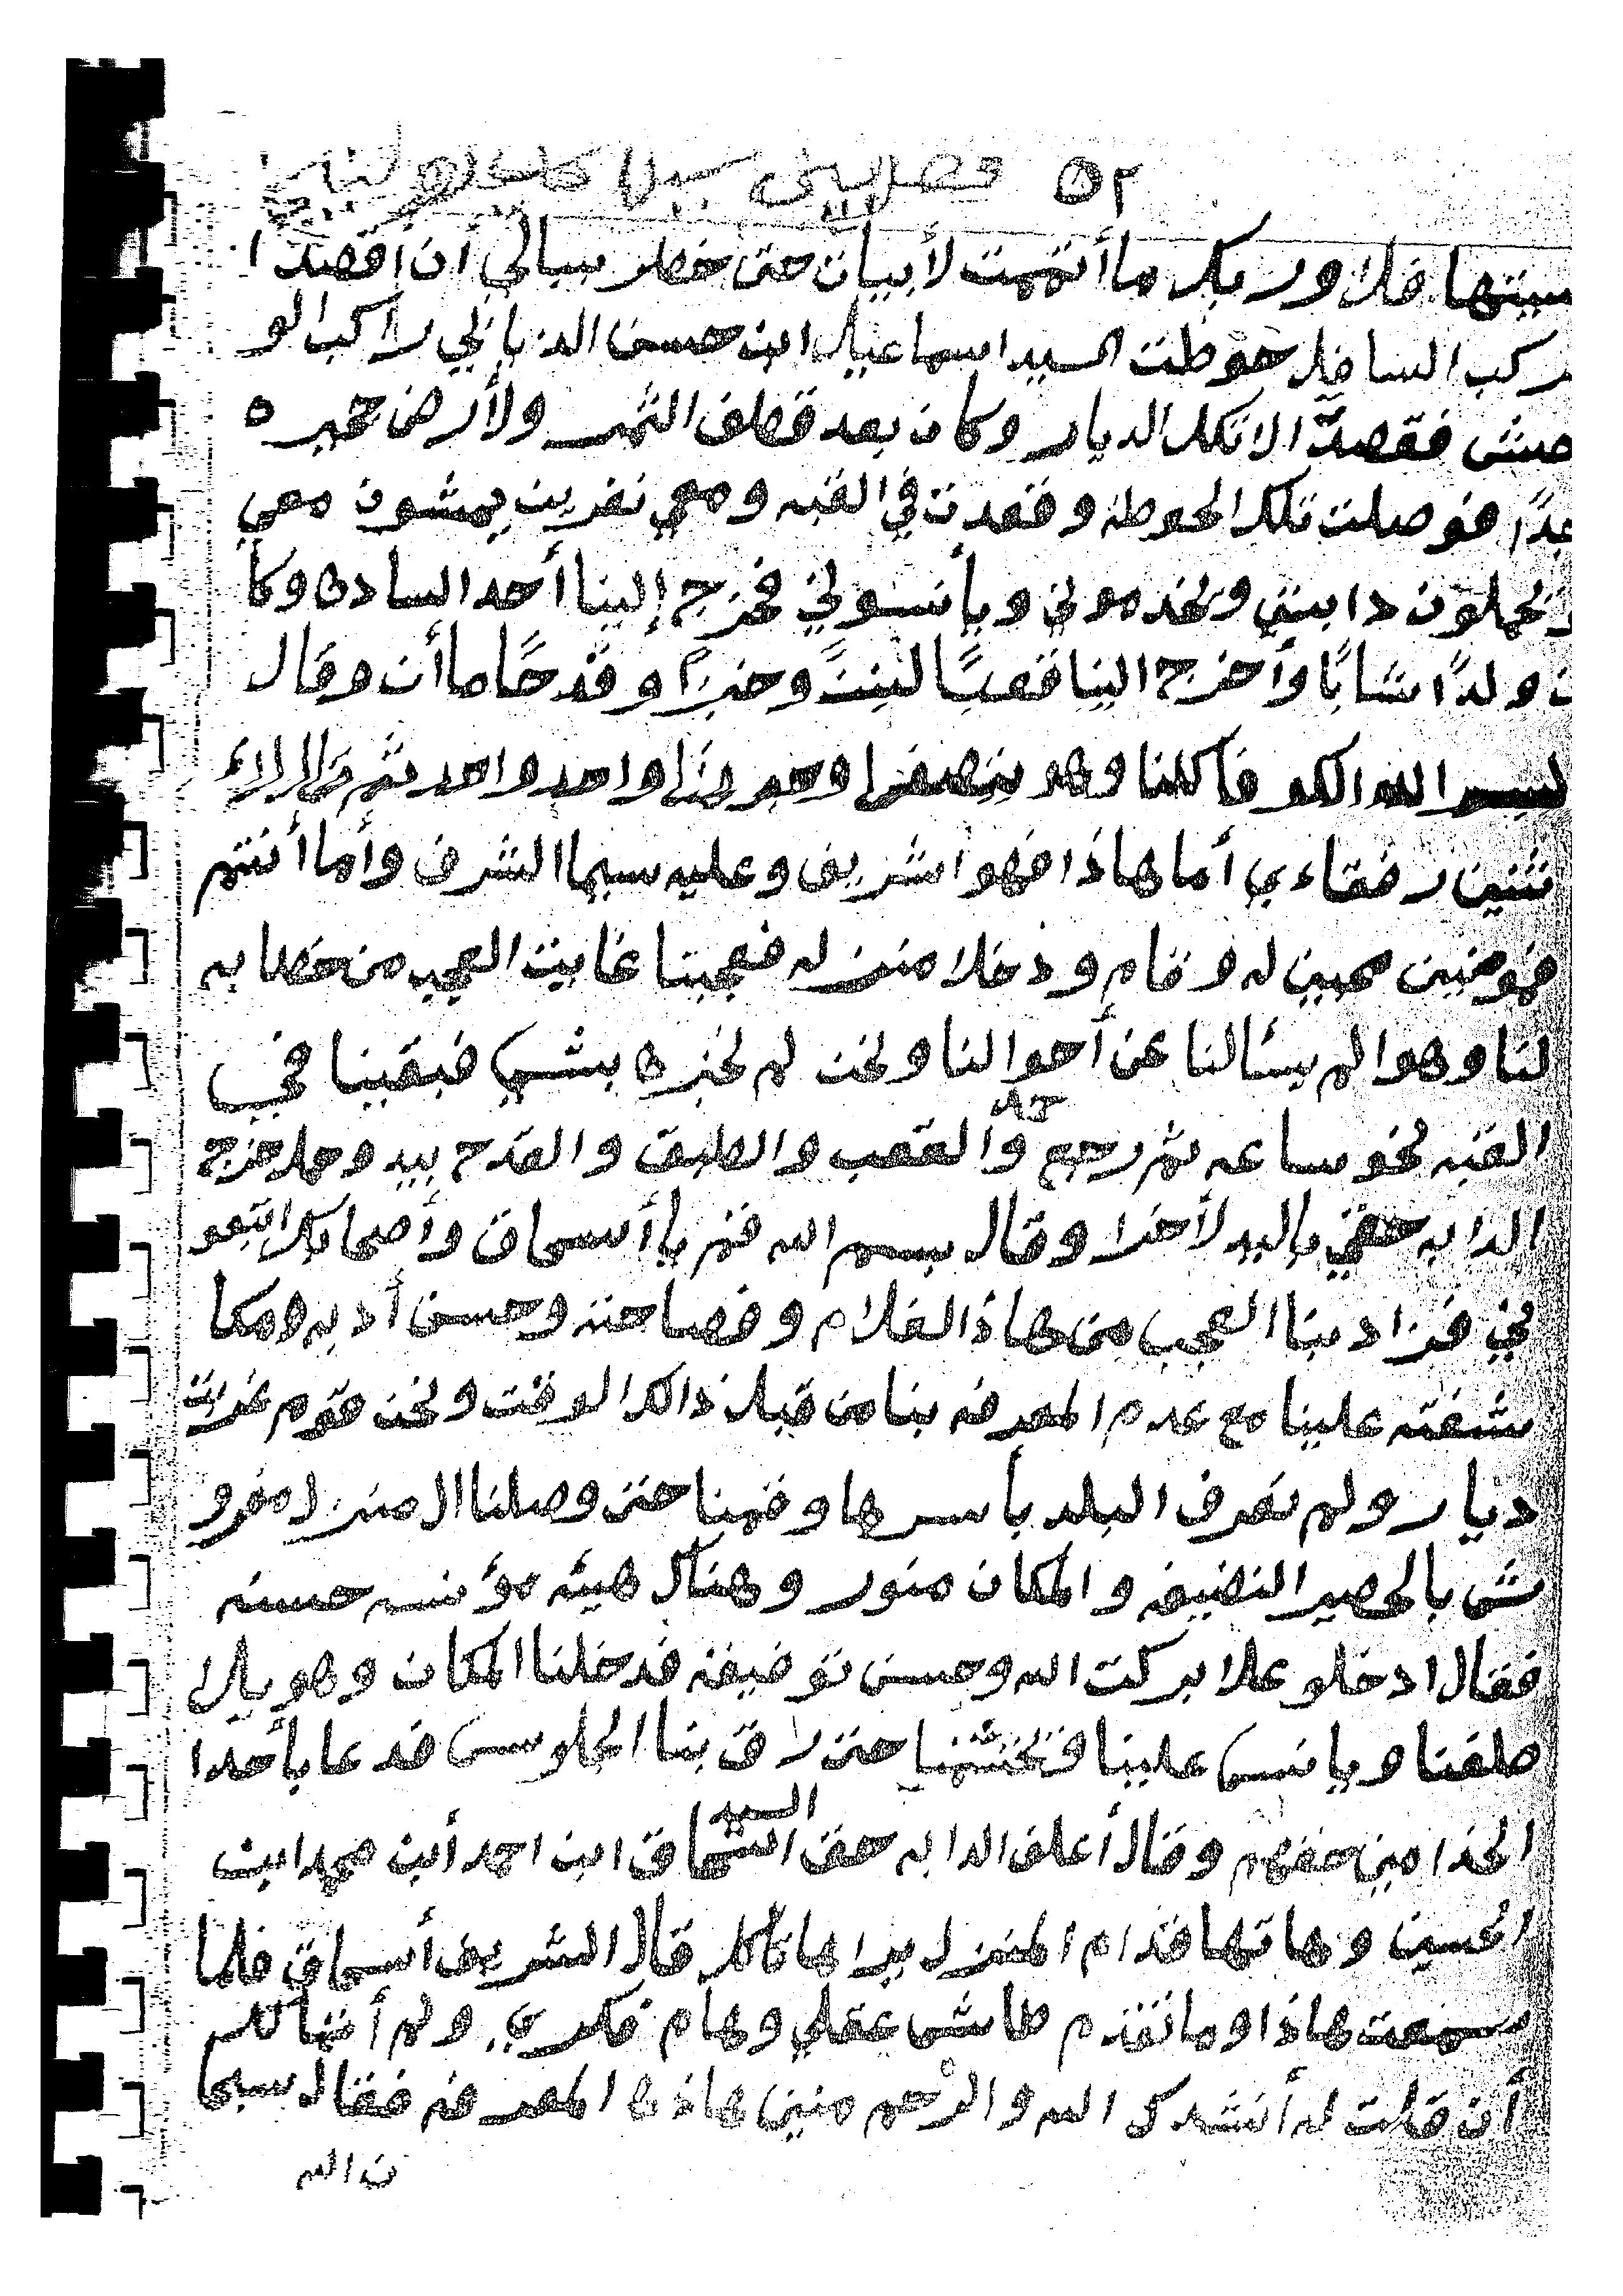 ٥٢
سيتها فلا وربك ما أتممت لأبيات حتى خطر ببالي أن اقصد ا
ركب السافل حوطت السيد اسماعيل ابن حسن الذباني راكب الو
حش فقصدت الا تلك الديار وكان بعد قطف الثمر ولأرض خيره
جدًا فوصلت تلك الحوطة وقعدت في القبه ومعي نفرين يمشون معي
ويحملون دابتي ويخدموني ويأنسوني فخرج إلينا أحد الساده وكا
ن ولدًا شابًا وأخرج الينا قعبًا لبنً وخبزًا وقدحًا ماأن وقال
بسم الله الكم فاكلنا وهو واحد واحد ثم قال للإ
ثنين رفقاءي أما هاذا فهوا شريف وعليه سيما الشرف وأما أنتم
فمومنين محبين له وقام ودخلا منزله فعجبنا غايت العجب من خطابه
لنا وهوا لم يسألنا عن أحوالنا ونحن لم نخبره بشي فبقينا في
القبه نحو ساعه ثم رجع والقعب والطبق والقدح بيد وحمل خرج
الدابه حقي باليد لأخرا وقال بسم الله قم يا أسحاق وأصحابك اتبعو
ني فزاد بنا العجب من هاذا الغلام وفصاحته وحسن أدبه ومكا
شفته علينا مع عدم المعرفه بنا من قبل ذالك الوقت ونحن قوم
ديار ولم نعرف البلد بأسرها وقمنا حتى وصلنا ال منزل مفرو
ش بالحصير النضيفه والمكان منور وهناك هيئه مؤنسه حسنه
فقال ادخلو علا بركت الله وحسن توفيقه فدخلنا المكان وهو يلا
طفنا ويانس علينا حتى لاق بنا الجلوس فدعا بأحدا
الخدامين حقهم وقال أعلف الدابه حق السيد اسحاق ابن احمد أبن محمد ابن
الحسين وهاتها قدام المنزل يراها تأكل قال الشريف أسحاق فلما
سمعت هاذا وما تقدم طاش عقلي وهام فكري ولم أتمالك
أن قلت له أنشدك الله والرحم منين هاذها المعرفه فقال سبحا
ن الله